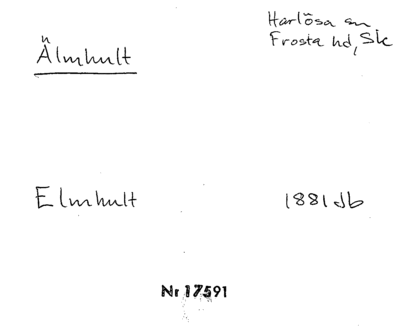 Älmhult
Harlösa sn
Frosta hd, Sk
Elmhult
1881 Jb
Nr 17591